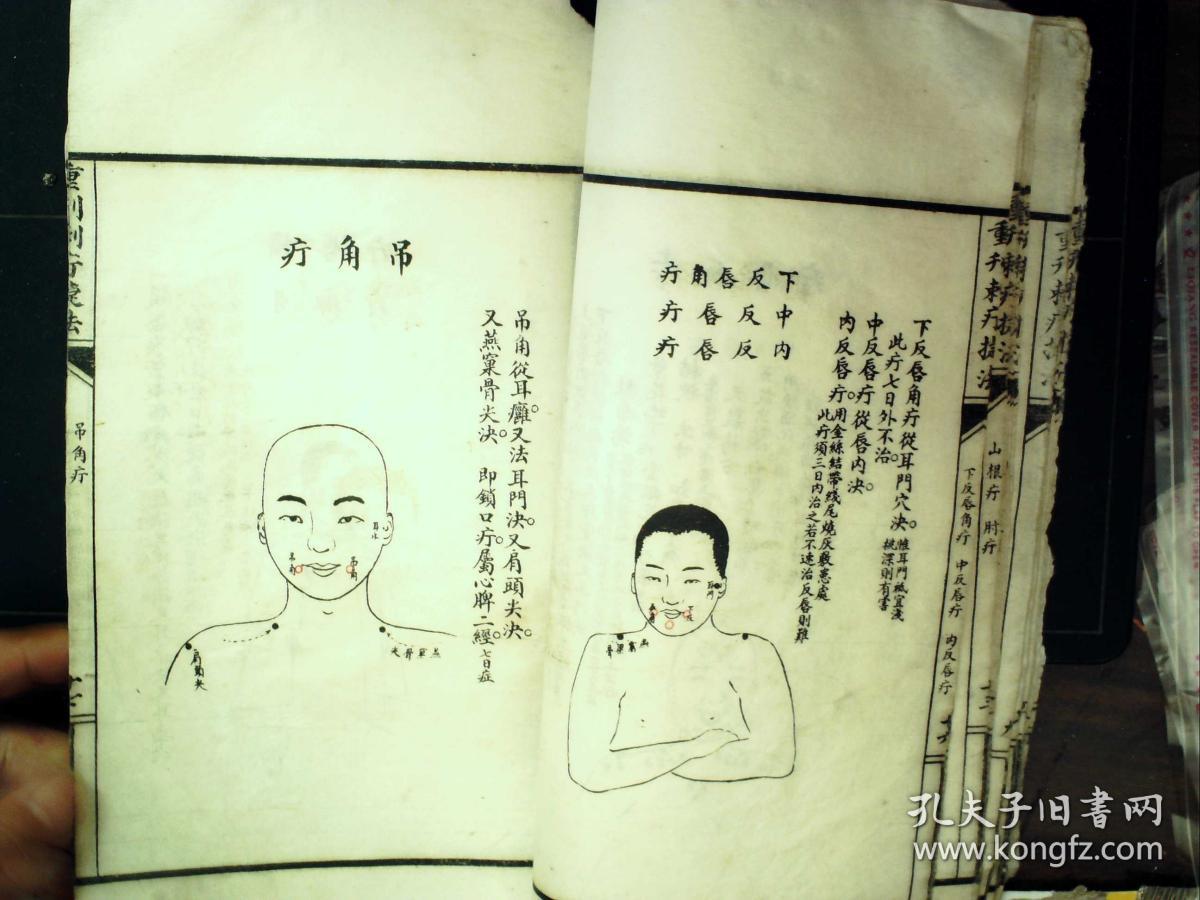 下反唇角疔
中反唇疔
內反唇疔
下反唇角疔從耳門穴決。惟耳門祗宜淺挑深則有害
此疔七日外不治。
中反唇疔從唇內決。
內反唇疔。用金絲結帶綫尾燒灰敷患處
此疔須三日內治之若不速治反唇則難
耳門
燕窩梁骨
山根疔 肘疔
下反唇角疔 中反唇疔 內反唇疔
吊角疔
吊角從耳癰。又法耳門決。又肩頭尖決。
又燕窠骨尖決。即鎖口疔。屬心脾二經。七日症
吊角
吊角
肩頭尖
燕窠骨尖
重刊刺疔捷法
吊角疔
孔夫子旧書网
www.kongfz.com